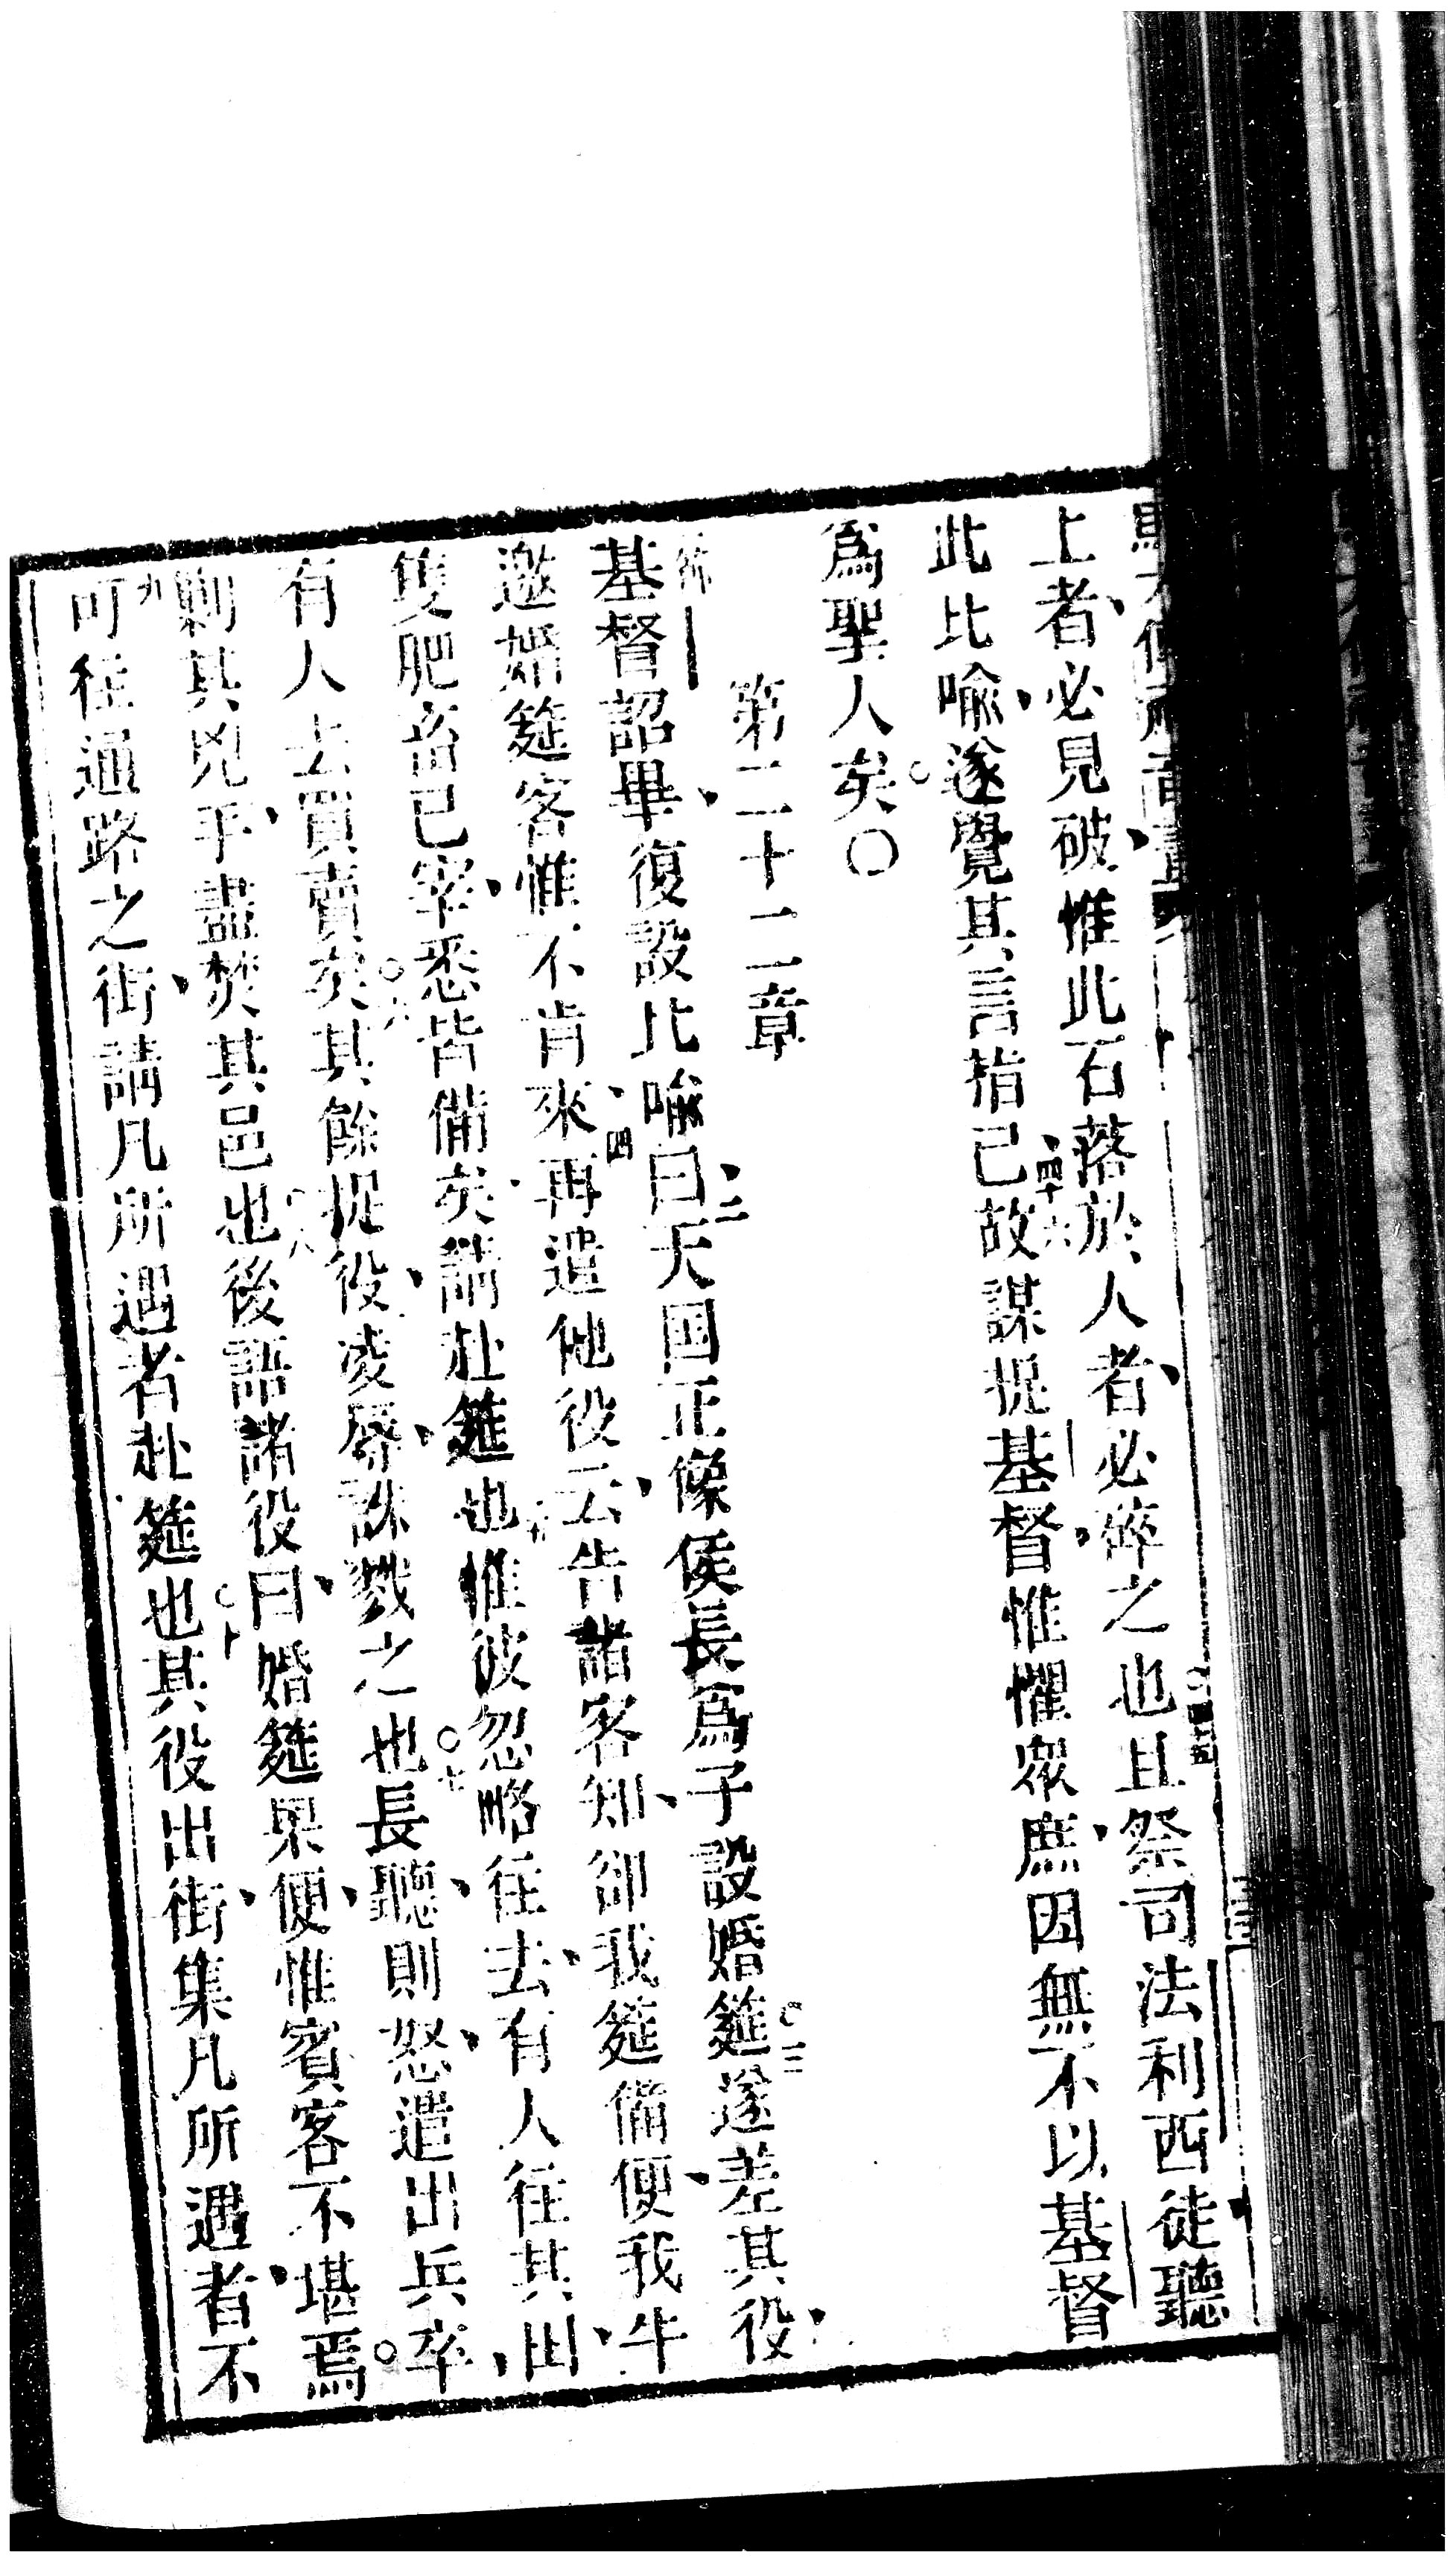 上者必見破惟此石落於人者必碎之也且祭司法利西徒聽
此比喻遂覺其言指己故謀捉基督惟懼眾庶因無不以基督
為聖人矣○
第二十二章
基督詔畢復設比喻曰天国正像侯長為子設婚筵遂差其役
邀婚筵客惟不肯來再遣他役云告諸客知卻我筵備便我牛
隻肥畜已宰悉皆備矣請赴筵也惟彼忽略往去有人往其田
有人去買賣矣其餘捉役凌辱誅戮之也長聽則怒遣出兵卒
剿其兇手盡焚其邑也後語諸役曰婚筵果便惟賓客不堪焉
可往通路之街請凡所遇者赴筵也其役出街集凡所遇者不